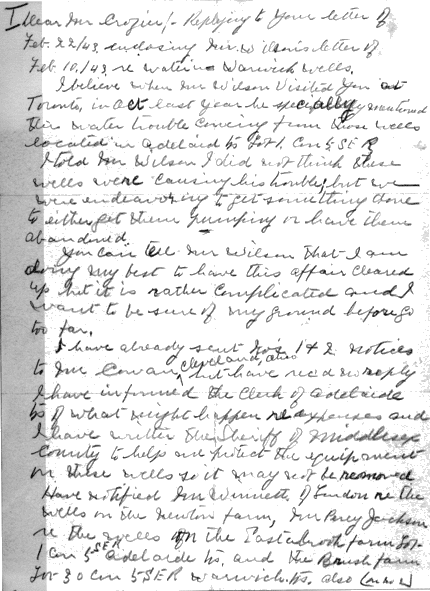 Dear Mr Crozier,/- Replying to Your letter of
Feb. 22/43 enclosing Mr. Wilson's letter of
Feb. 10/43 re water in Warwick wells.
I believe when Mr Wilson Visited You at
Toronto, in Oct last year he specially mentioned
this water trouble coming from these wells
located in Adelaide Ts Lot 1. Con 5 SER
I told Mr Wilson I did not think these
wells were causing his trouble, but we
were endeavoring to get something done
to either get them pumping or have them
abandoned.
You can tell Mr Wilson that I am
doing my best to have this affair cleared
up but it is rather complicated and I
want to be sure of my ground before go
too far.
I have already sent No's 1 & 2 notices
to Mr Cowan, Cleveland, Ohio but have rec'd no reply
I have informed the Clerk of Adelaide
Ts of what might happen re expenses and
I have written the Sheriff of Middlesex
County to help me protect the equipment
on these wells so it may not be removed
Have notified Mr Winnett, of London re the
wells on the Newton farm, Mr Percy Jackson
re the wells on the Easterbrook farm Lot
1 Con 5 SER Adelaide Ts, and the Brush farm
Lot 30 Con 5 SER Warwick Ts. also